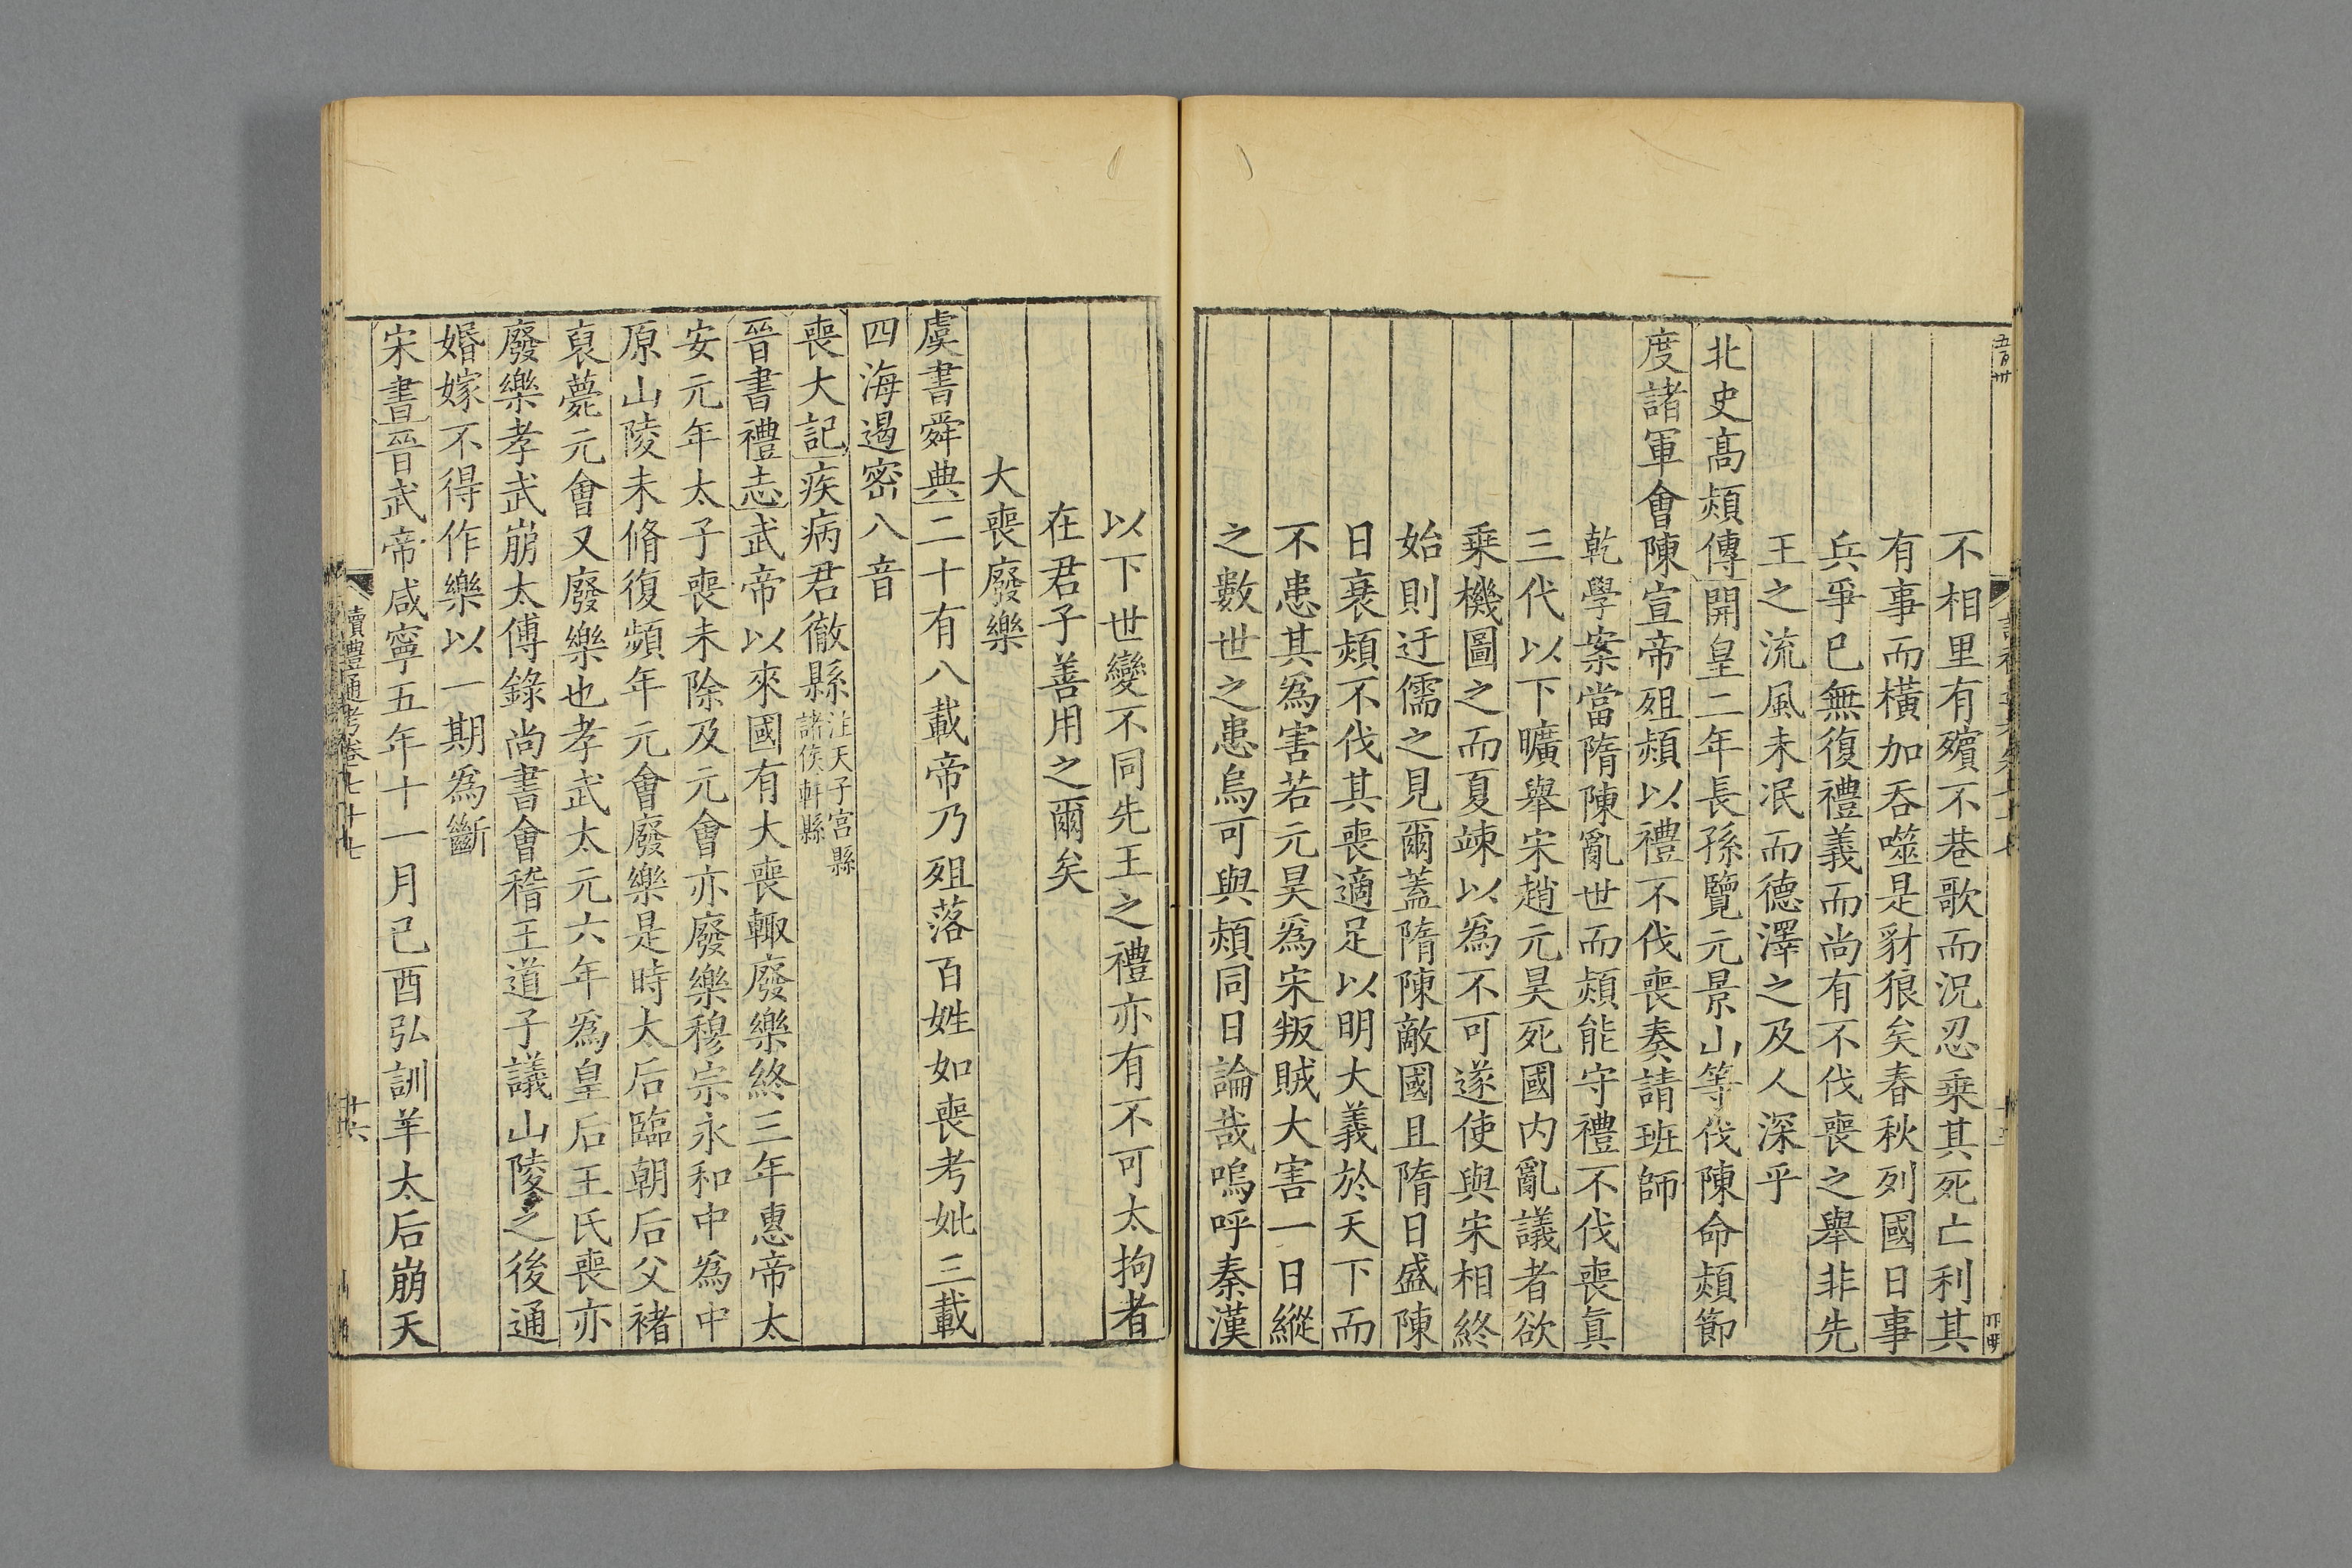 不相里有殯不巷歌而況忍乗其死亡利其
有事而橫加吞噬是豺狼矣春秋列國日事
兵爭已無復禮義而尚有不伐喪之舉非先
王之流風未泯而德澤之及人深乎
北史高熲傳開皇二年長孫覽元景山等伐陳命熲節
度諸軍會陳宣帝殂熲以禮不伐喪奏請班師
乾學案當隋陳亂世而熲能守禮不伐喪眞
三代以下曠舉宋趙元昊死國内亂議者欲
乗機圖之而夏竦以為不可遂使與宋相終
始則迂儒之見爾蓋隋陳敵國且隋日盛陳
日衰熲不伐其喪適足以明大義於天下而
不患其爲害若元昊爲宋叛賊大害一日縱
之數世之患烏可與熲同日論哉嗚呼秦漢
以下世變不同先王之禮亦有不可太拘者
在君子善用之爾矣
大喪廢樂
虞書舜典二十有八載帝乃殂落百姓如喪考妣三載
四海遏密八音
喪大記疾病君徹縣注天子宮縣
諸侯軒縣
晉書禮志武帝以來國有大喪輙廢樂終三年惠帝太
安元年太子喪未除及元會亦廢樂穆宗永和中爲中
原山陵未脩復頻年元會廢樂是時太后臨朝后父褚
裒薨元會又廢樂也孝武太元六年爲皇后王氏喪亦
廢樂孝武崩太傅錄尚書會稽王道子議山陵之後通
婚嫁不得作樂以一期爲斷
宋書晉武帝咸寧五年十一月己酉弘訓羊太后崩天
讀禮通考卷七十七
十六